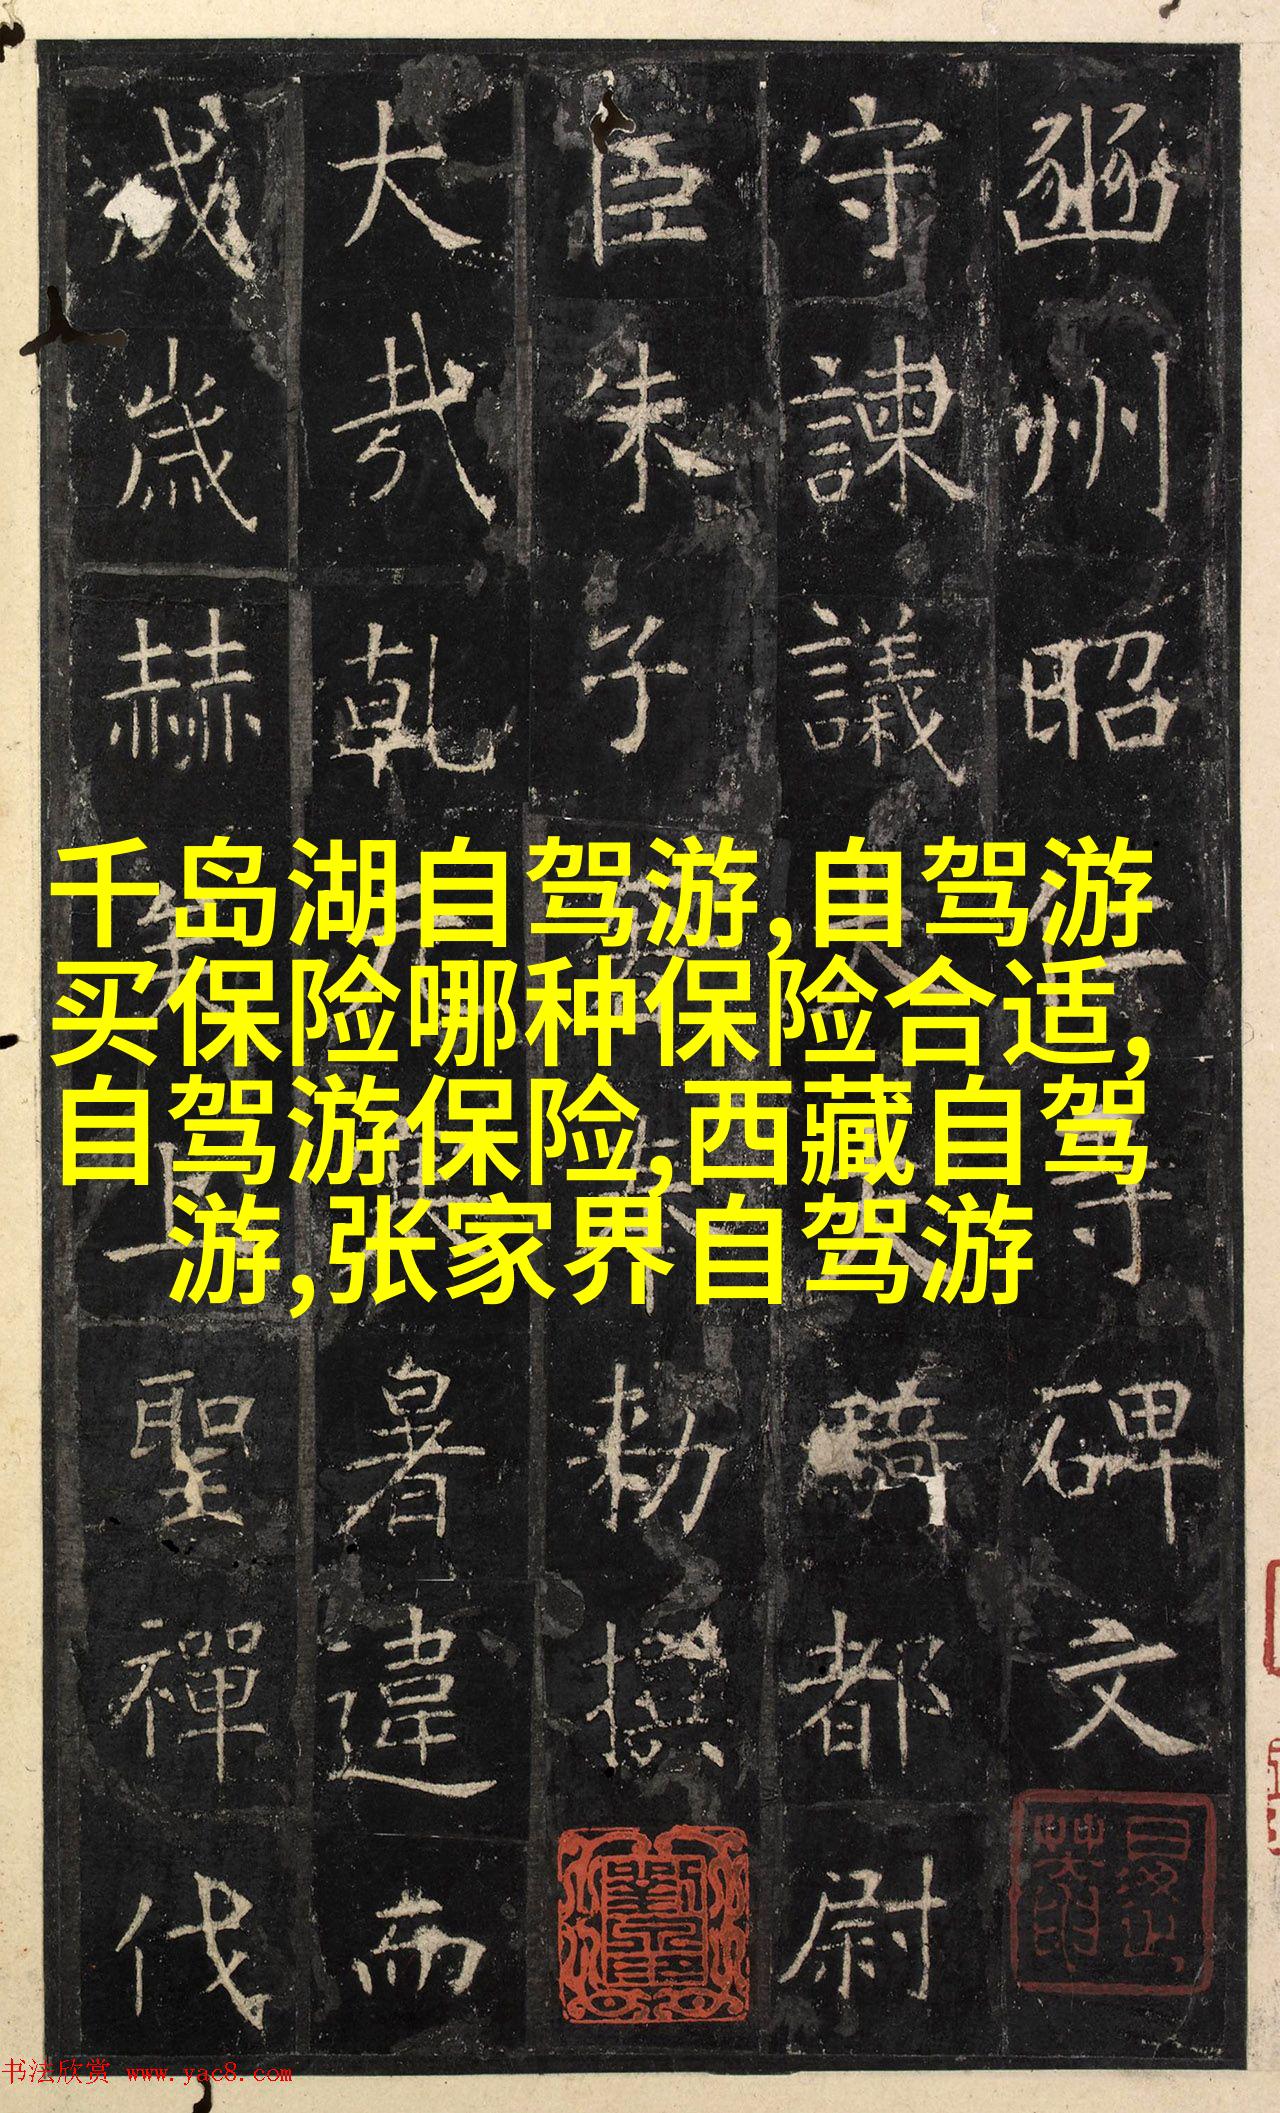 千岛湖自驾游,自驾游
买保险哪种保险合适,
自驾游保险,西藏自驾
游,张家界自驾游
豳州昭寺碑文
守諫議騎都尉
臣朱子勅撰
大哉乾暑違而
成歲赫聖禪代
书法欣赏 www.yac8.com